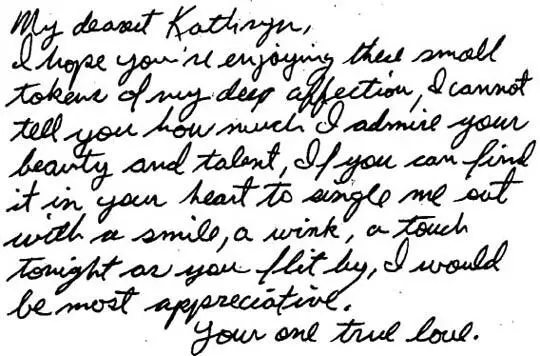 My dearest Kathryn,
I hope you're enjoying these small
tokens of my deep affection, I cannot
tell you how much I admire your
beauty and talent, If you can find
it in your heart to single me out
with a smile, a wink, a touch
tonight as you flit by, I would
be most appreciative.
Your one true love.